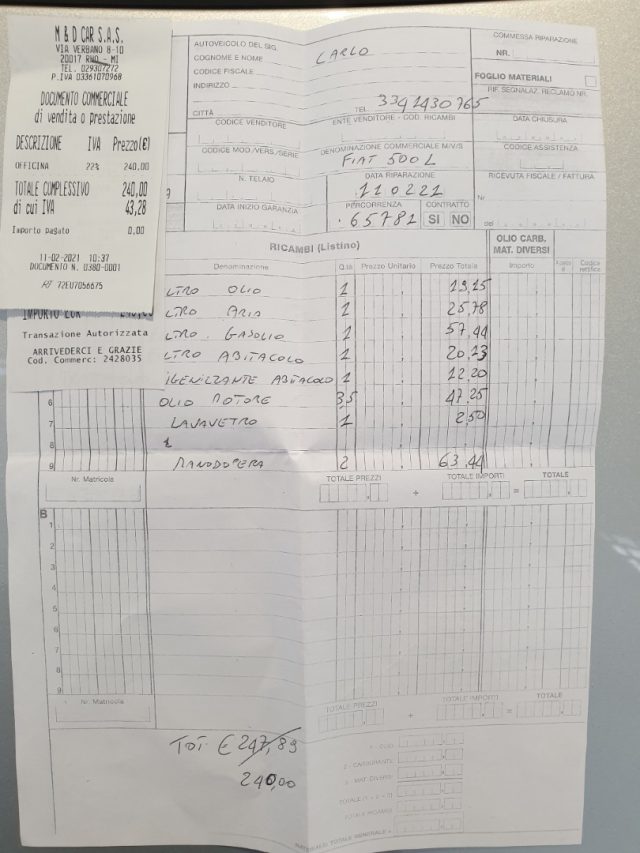 M & D CAR S.A.S.
VIA VERBANO 8-10
20017 RHO - MI
TEL. 029307272
P.IVA 03361070968
DOCUMENTO COMMERCIALE
di vendita o prestazione
DESCRIZIONE IVA Prezzo(€)
OFFICINA 22% 240,00
TOTALE COMPLESSIVO 240,00
di cui IVA 43,28
Importo pagato 0,00
11-02-2021 10:37
DOCUMENTO N. 0380-0001
RT 72EU7056675
Transazione Autorizzata
ARRIVEDERCI E GRAZIE
Cod. Commerc: 2428035
AUTOVEICOLO DEL SIG.
COGNOME E NOME CARLO
CODICE FISCALE
INDIRIZZO
CITTÀ TEL. 3391430765
COMMESSA RIPARAZIONE
NR.
FOGLIO MATERIALI
RIF. SEGNALAZ. RECLAMO NR.
CODICE VENDITORE ENTE VENDITORE - COD. RICAMBI DATA CHIUSURA
CODICE MOD./VERS./SERIE DENOMINAZIONE COMMERCIALE M/V/S CODICE ASSISTENZA
FIAT 500L
N. TELAIO DATA RIPARAZIONE RICEVUTA FISCALE / FATTURA
110221 Nr.
DATA INIZIO GARANZIA PERCORRENZA CONTRATTO
65781 SI NO
RICAMBI (Listino) OLIO CARB. MAT. DIVERSI
Denominazione Q.tà Prezzo Unitario Prezzo Totale Importo
LTRO OLIO 1 19,15
LTRO ARIA 1 25,78
LTRO GASOLIO 1 57,44
LTRO ABITACOLO 1 20,13
IGENIZZANTE ABITACOLO 1 12,20
6 OLIO MOTORE 3,5 47,25
7 LAVAVETRO 1 2,50
8 1
9 MANODOPERA 2 63,44
Nr. Matricola TOTALE PREZZI + TOTALE IMPORTI = TOTALE
B
1
2
3
4
5
6
7
8
9
Nr. Matricola TOTALE PREZZI + TOTALE IMPORTI = TOTALE
TOT € 247,89
240,00
1 - OLIO
2 - CARBURANTE
3 - MAT. DIVERSI
TOTALE (1 + 2 + 3)
TOTALE RICAMBI
MATERIALI: TOTALE GENERALE =